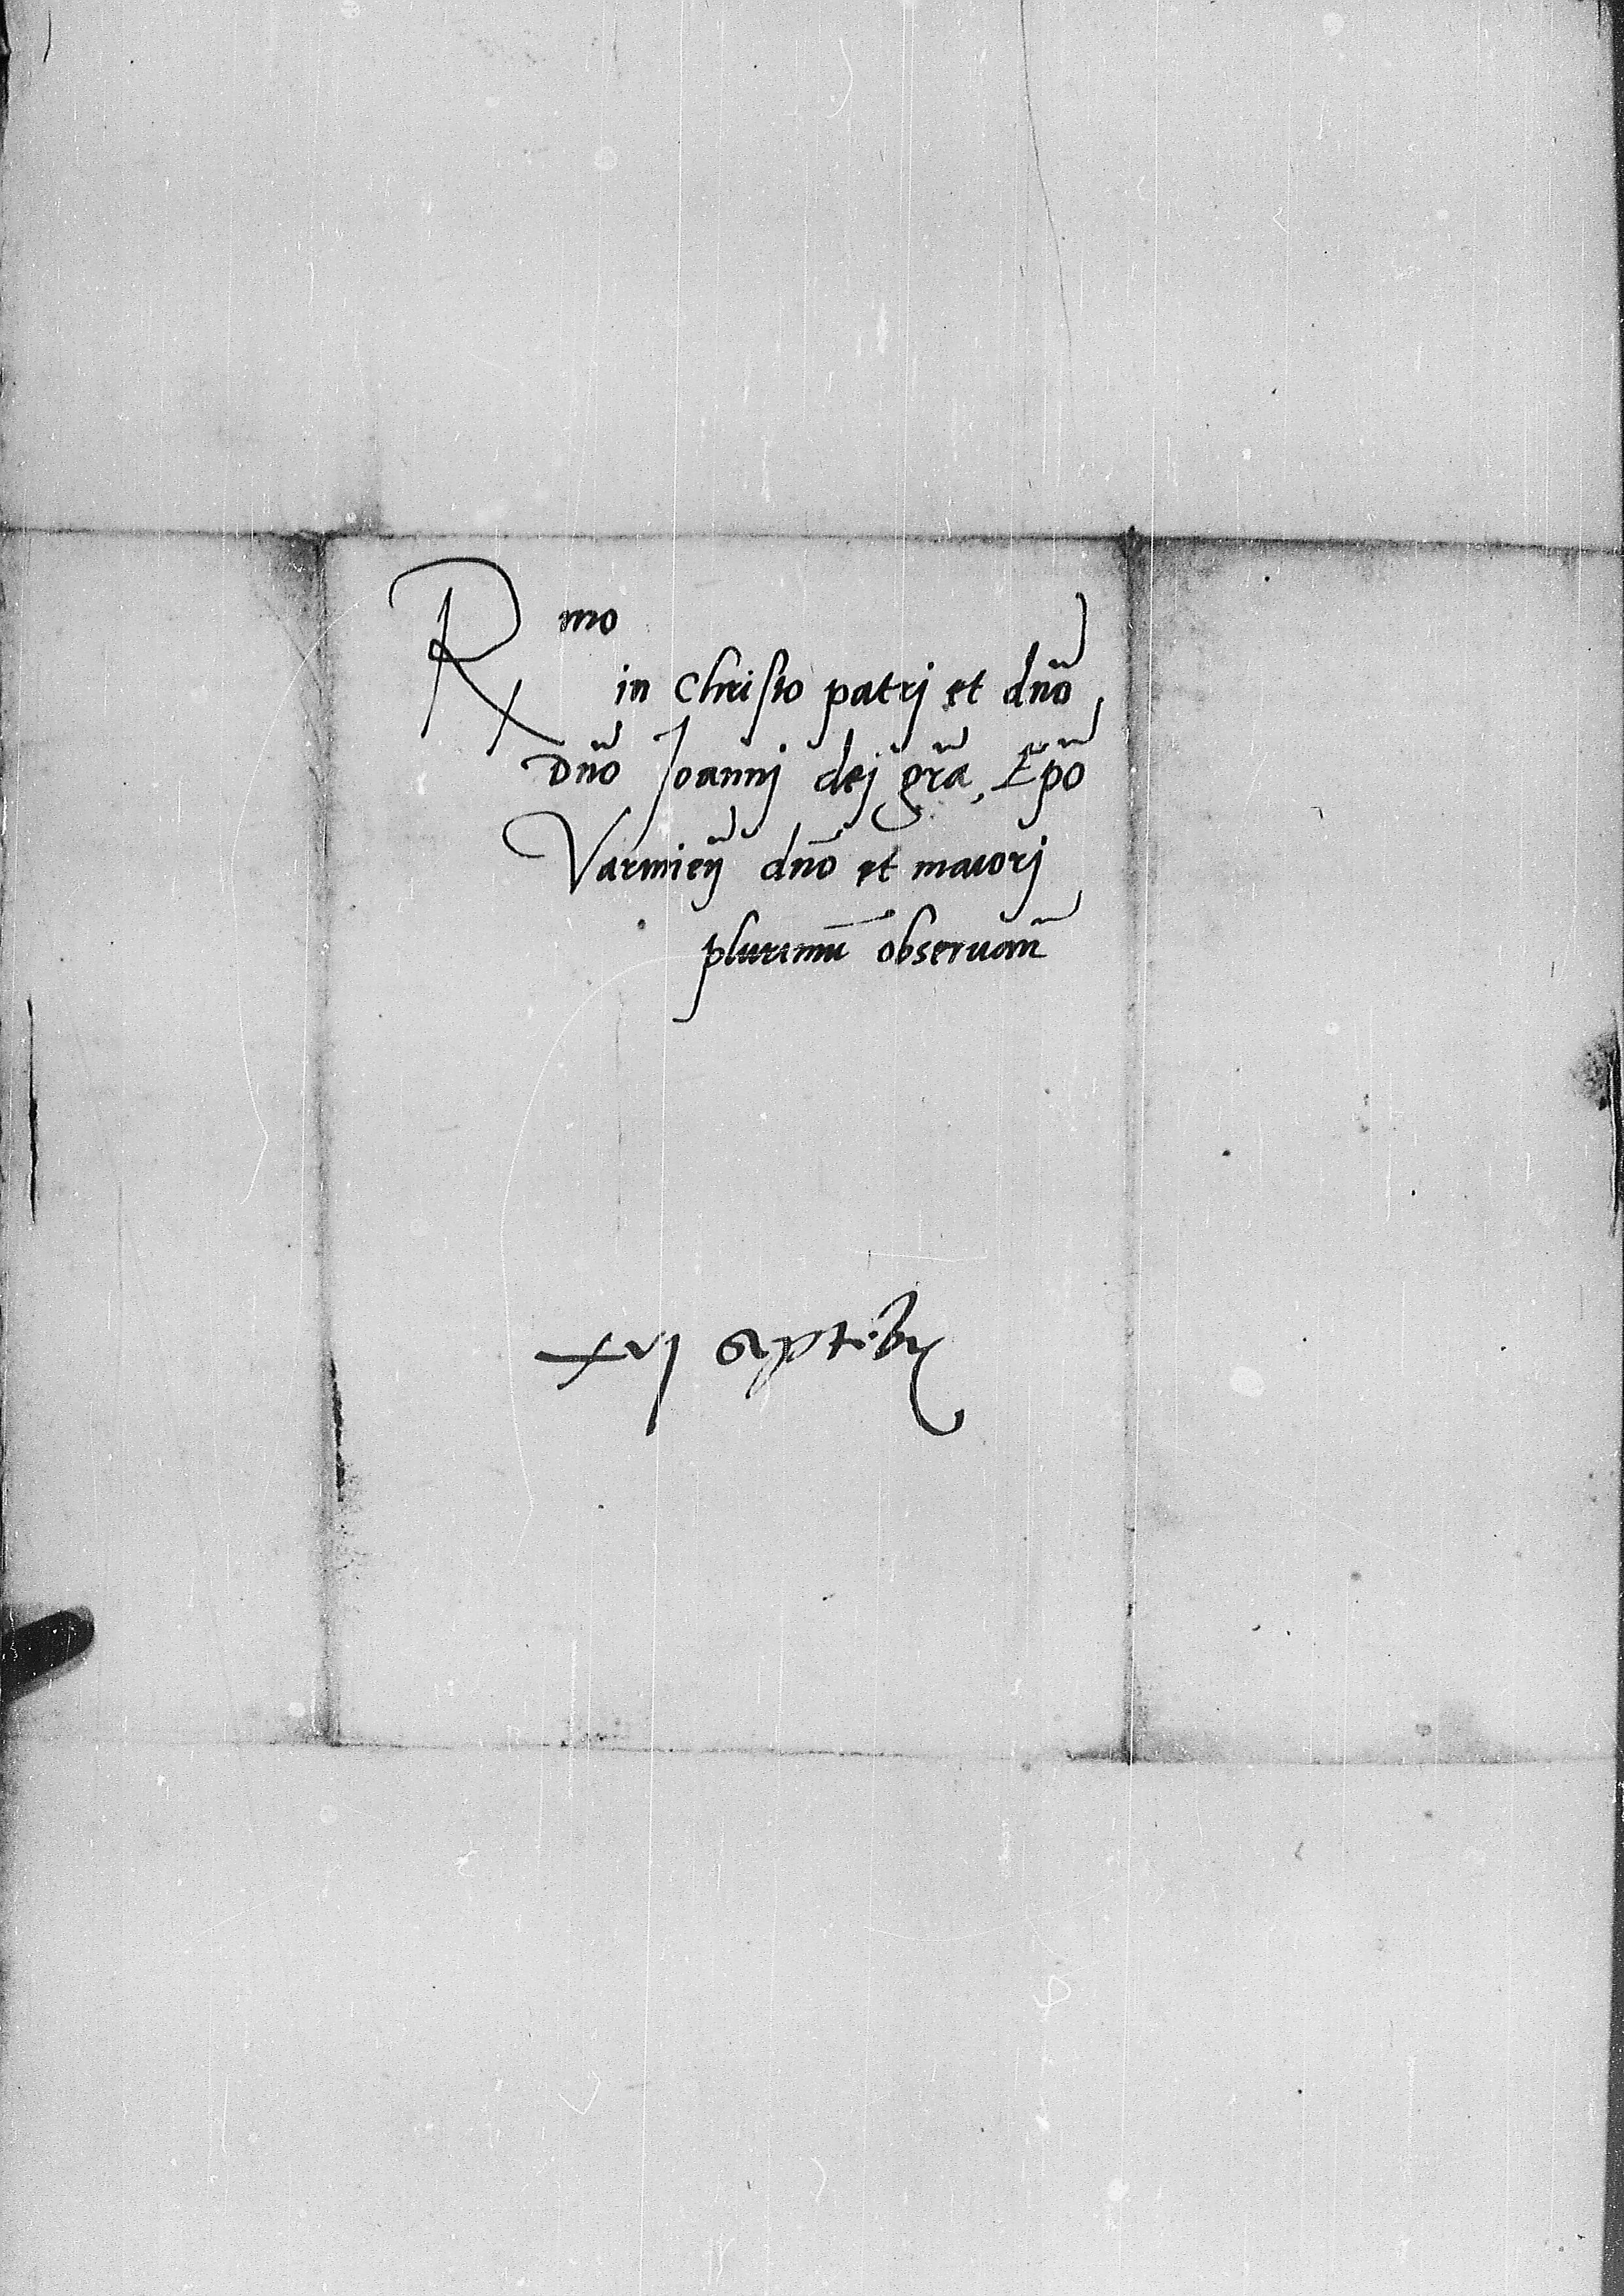 Rmo
in Christo patrj et dño
Dño Joannj dej gr̃a, Ep̃o
Varmieñ dño et maiorj
plurimū obseruañ
xvj septēbr